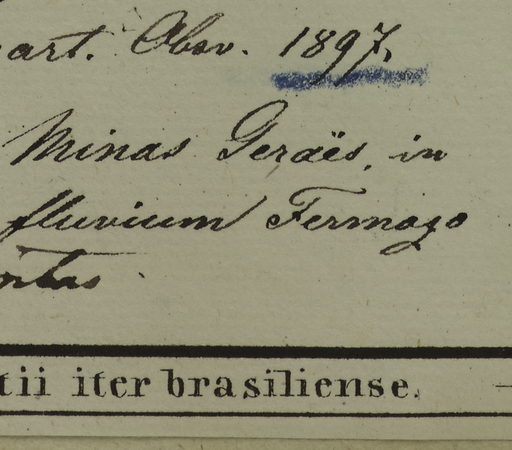 art. Obsv. 1897.
Minas Geraës, in
fluvium Fermago
ortas
tii iter brasiliense.